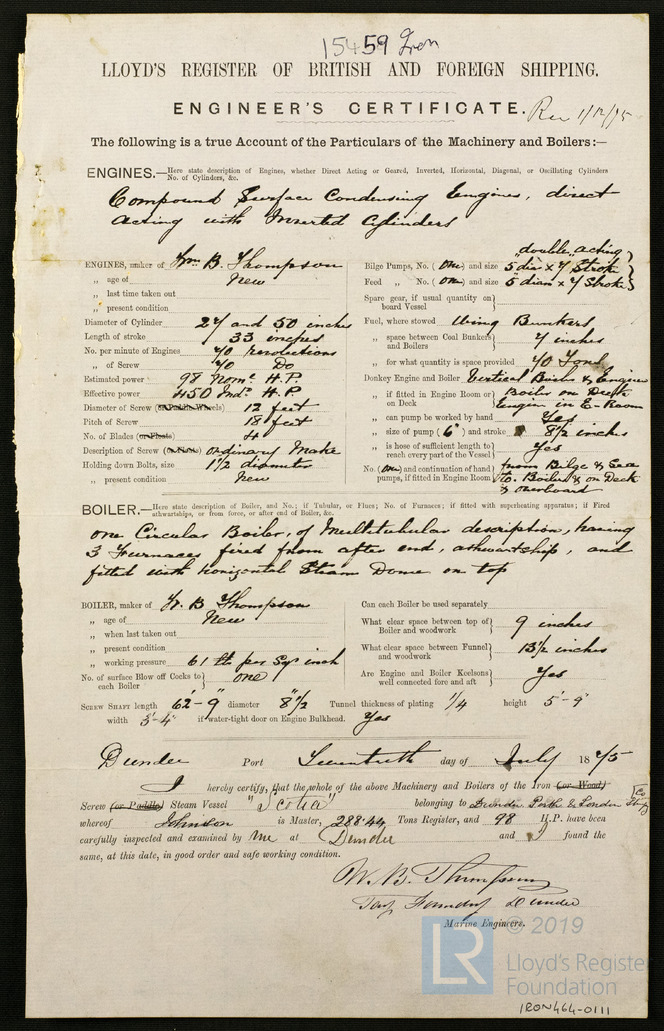 15459 Iron
LLOYD'S REGISTER OF BRITISH AND FOREIGN SHIPPING.
ENGINEER'S CERTIFICATE. Rec 1/12/75
The following is a true Account of the Particulars of the Machinery and Boilers:—
ENGINES.—Here state description of Engines, whether Direct Acting or Geared, Inverted, Horizontal, Diagonal, or Oscillating Cylinders
No. of Cylinders, &c.
Compound Surface Condensing Engines, direct
acting with Inverted Cylinders
ENGINES, maker of Wm B. Thompson
„ age of New
„ last time taken out
„ present condition
Diameter of Cylinder 27 and 50 inches
Length of stroke 33 inches
No. per minute of Engines 70 revolutions
„ of Screw 70 Do
Estimated power 98 Nom. H.P.
Effective power 450 Ind. H.P.
Diameter of Screw (or Paddle Wheels) 12 feet
Pitch of Screw 18 feet
No. of Blades (or Floats) 4
Description of Screw ordinary Make
Holding down Bolts, size 1 1/2 diameter
„ present condition New
"double acting"
Bilge Pumps, No. (One) and size 5" dia x 7" Stroke
Feed „ No. (One) and size 5" diam x 7" Stroke
Spare gear, if usual quantity on
board Vessel
Fuel, where stowed Wing Bunkers
„ space between Coal Bunkers
and Boilers 7 inches
„ for what quantity is space provided 70 Tons
Donkey Engine and Boiler Vertical Boiler & Engine
„ if fitted in Engine Room or
on Deck Boiler on Deck
Engine in E-Room
„ can pump be worked by hand Yes
„ size of pump (6") and stroke 8 1/2 inches
„ is hose of sufficient length to
reach every part of the Vessel Yes
No. (One) and continuation of hand
pumps, if fitted in Engine Room from Bilge & Sea
to Boiler & on Deck
& overboard
BOILER.—Here state description of Boiler, and No.; if Tubular, or Flues; No. of Furnaces; if fitted with superheating apparatus; if Fired
athwartships, or from force, or after end of Boiler, &c.
One Circular Boiler, of Multitubular description, having
3 Furnaces fired from after end, athwartship, and
fitted with horizontal Steam Dome on top
BOILER, maker of W. B Thompson
„ age of New
„ when last taken out
„ present condition
„ working pressure 61 lb per Sqr inch
No. of surface Blow off Cocks to
each Boiler one
Can each Boiler be used separately
What clear space between top of
Boiler and woodwork 9 inches
What clear space between Funnel
and woodwork 13 1/2 inches
Are Engine and Boiler Keelsons
well connected fore and aft Yes
SCREW SHAFT length 62'-9" diameter 8" 1/2 Tunnel thickness of plating 1/4 height 5'-9"
width 3'-4" if water-tight door on Engine Bulkhead. Yes
Dundee Port day of July 1875
I hereby certify, that the whole of the above Machinery and Boilers of the Iron (or Wood)
Screw (or Paddle) Steam Vessel "Scotia" belonging to Dundee Perth & London Shipg Co
whereof Johnston is Master, 288.44 Tons Register, and 98 H.P. have been
carefully inspected and examined by me at Dundee and I found the
same, at this date, in good order and safe working condition.
W. B. Thompson
Tay Foundry Dundee
Marine Engineers.
© 2019
LR
Lloyd's Register
Foundation
IRON464-0111